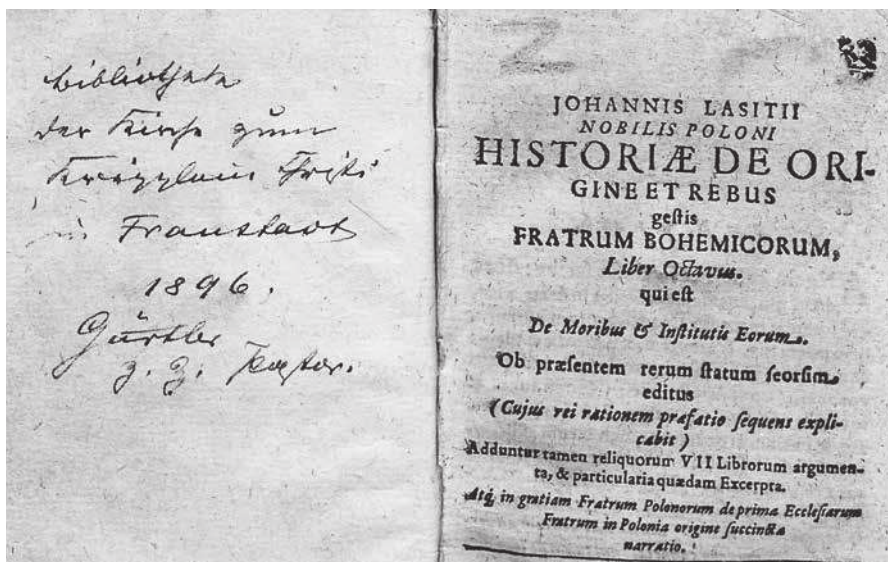 Bibliothek
der Kirche zum
Kripplein Christi
in Fraustadt
1896.
Gürtler
z. Z. Pastor.
JOHANNIS LASITII
NOBILIS POLONI
HISTORIÆ DE ORI-
GINE ET REBUS
geſtis
FRATRUM BOHEMICORUM,
Liber Octavus.
qui eſt
De Moribus & Inſtitutis Eorum.
Ob præſentem rerum ſtatum ſeorſim
editus
(Cujus rei rationem præfatio ſequens expli-
cabit)
Adduntur tamen reliquorum VII Librorum argumen-
ta, & particularia quædam Excerpta.
Atq́; in gratiam Fratrum Polonorum de prima Eccleſiarum
Fratrum in Polonia origine ſuccincta
narratio.